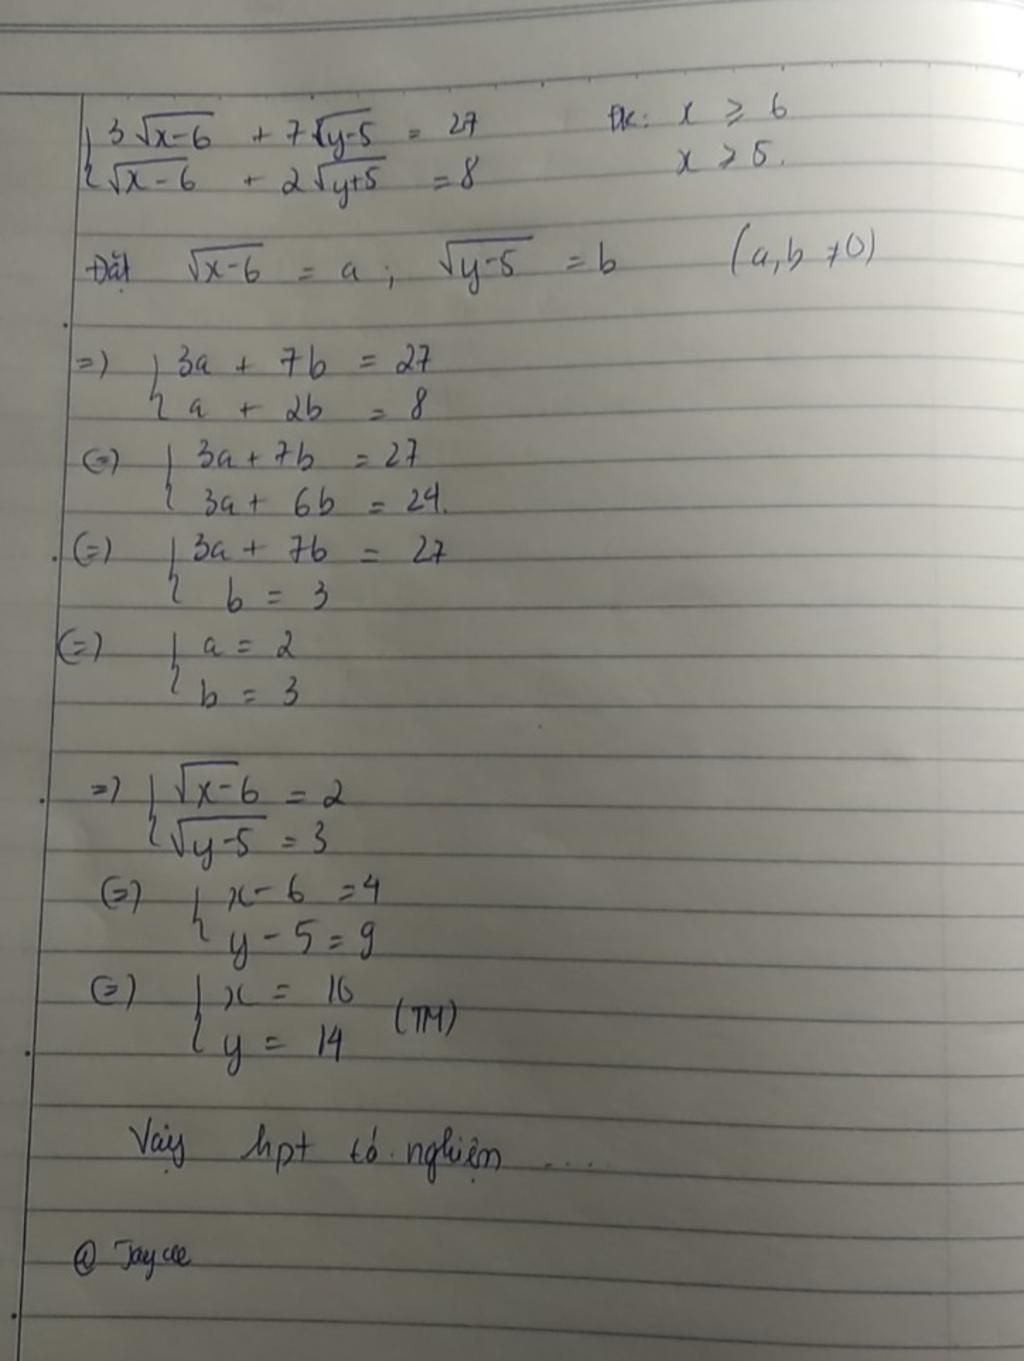 3√(x-6) + 7√(y-5) = 27 Đk: x ≥ 6
√(x-6) + 2√(y+5) = 8 x > 5.
Đặt √(x-6) = a ; √(y-5) = b (a,b ≠0)
=) { 3a + 7b = 27
a + 2b = 8
(=) { 3a + 7b = 27
3a + 6b = 24.
(=) { 3a + 7b = 27
b = 3
(=) { a = 2
b = 3
=) { √(x-6) = 2
√(y-5) = 3
(=) { x - 6 = 4
y - 5 = 9
(=) { x = 10
y = 14 (TM)
Vậy hpt có nghiệm ....
@ Jayce